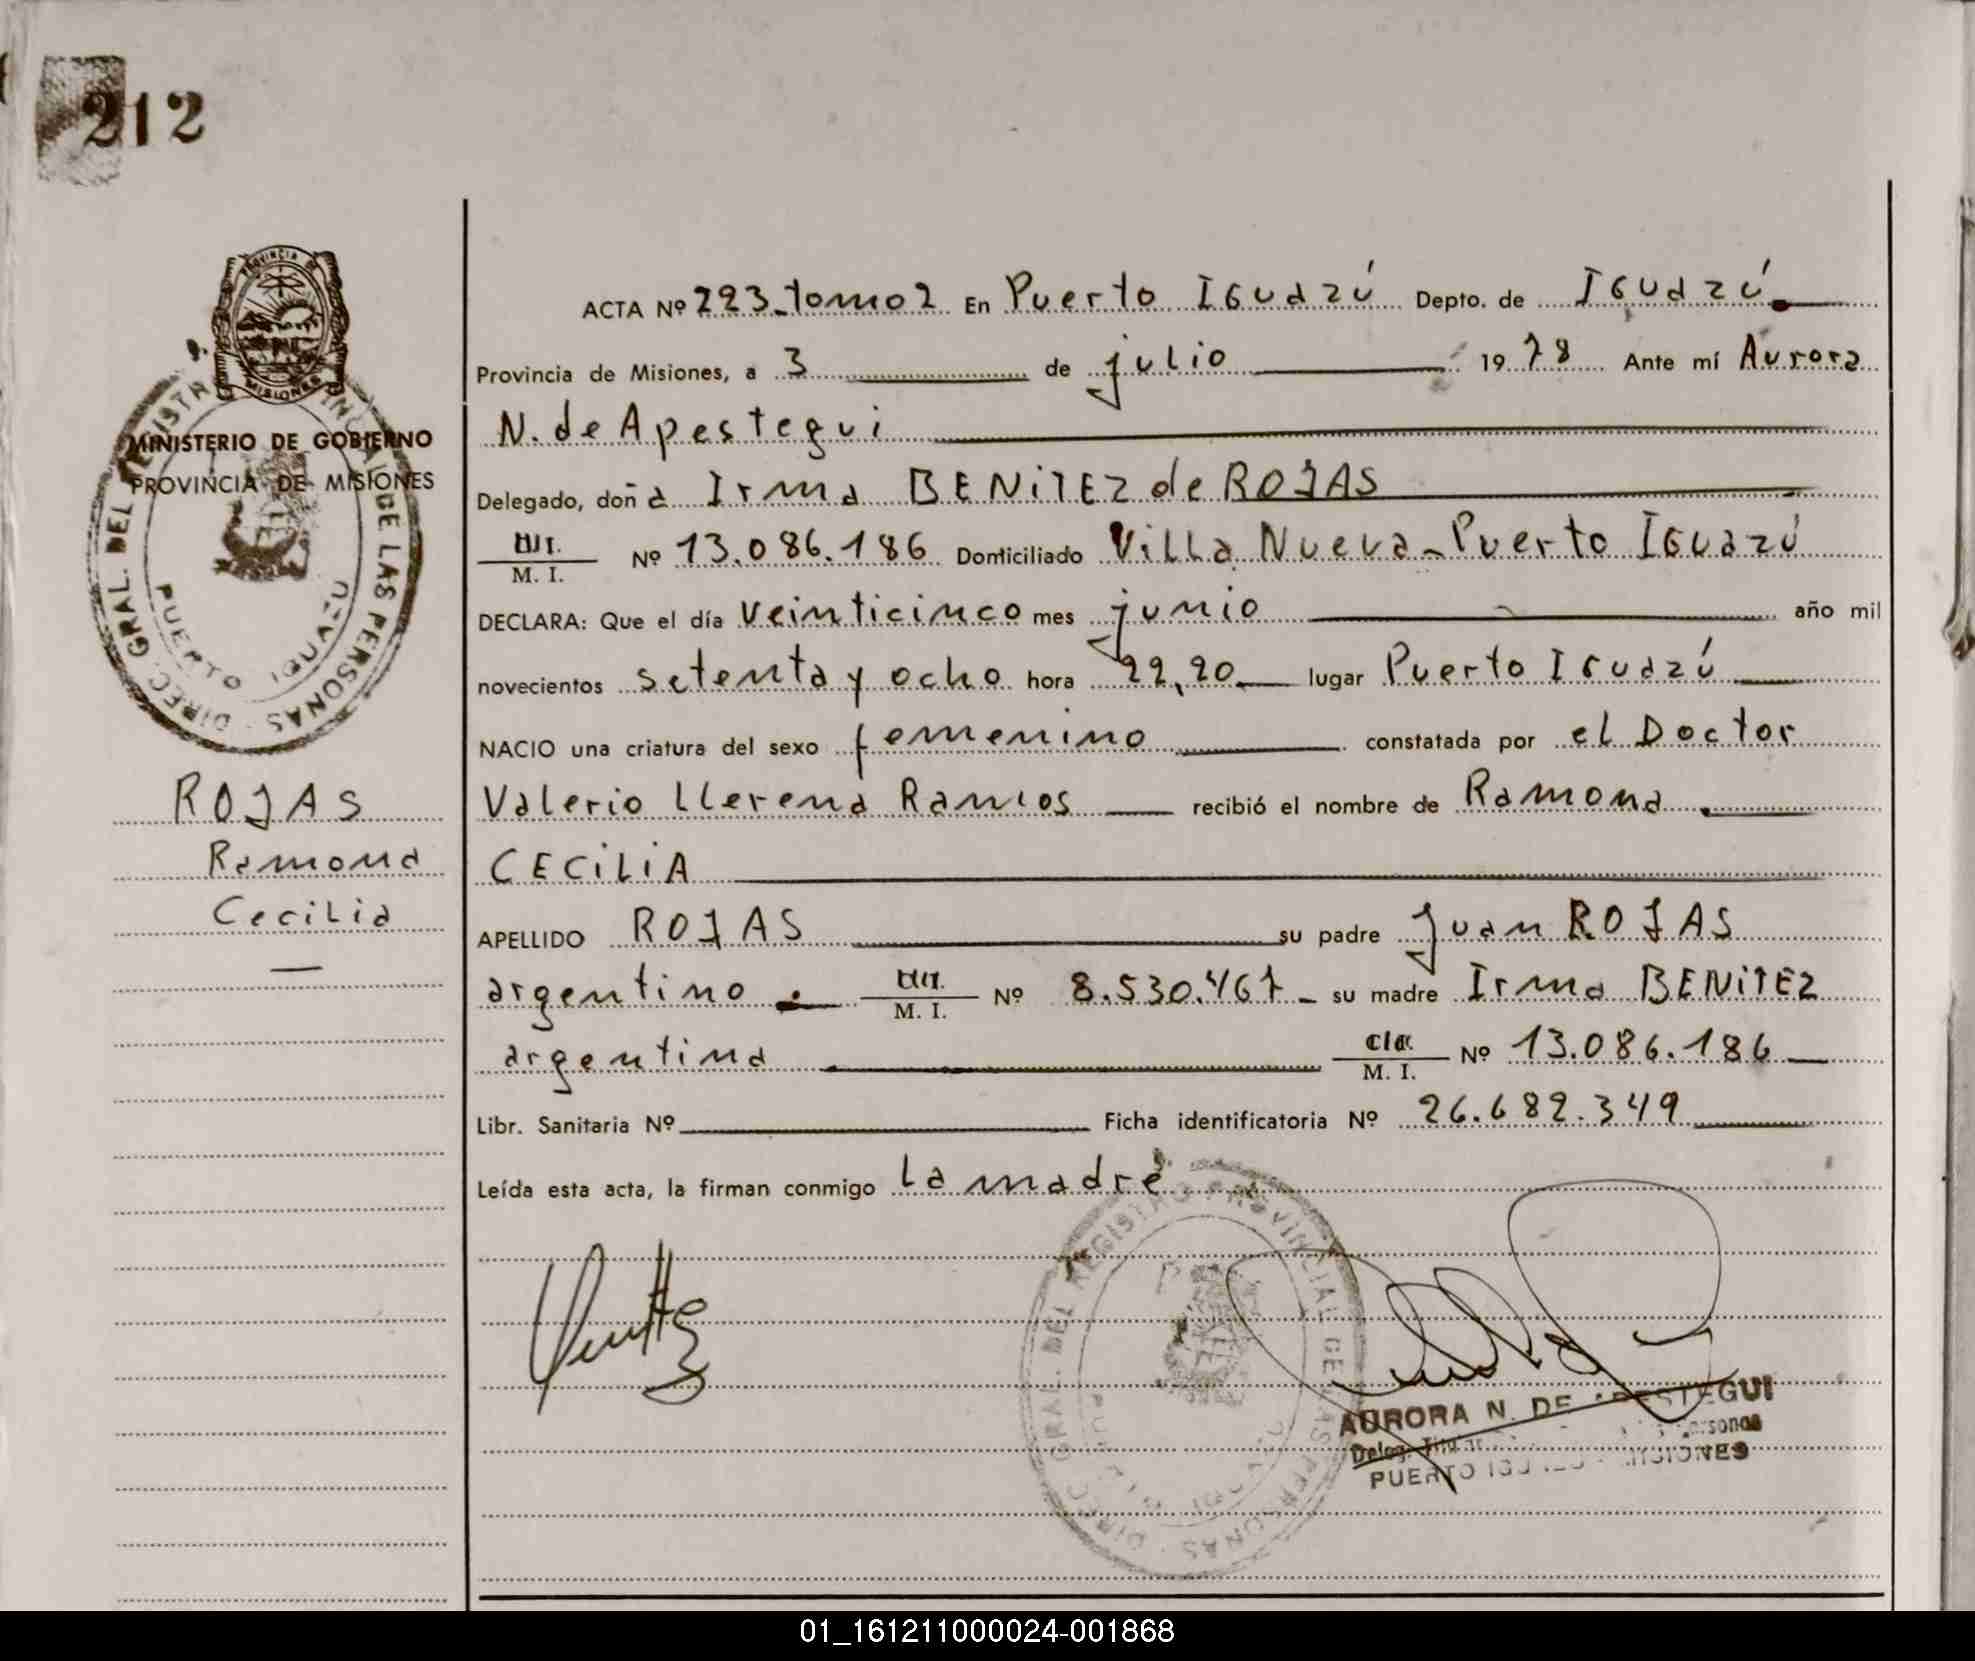 212
PROVINCIA DE
MISIONES
MINISTERIO DE GOBIERNO
PROVINCIA DE MISIONES
DIREC. GRAL. DEL REGISTR PROVINCIAL DE LAS PERSONAS
PUERTO IGUAZU
ROJAS
Ramona
Cecilia
ACTA Nº 223_tomo 2 En Puerto Iguazú Depto. de Iguazú
Provincia de Misiones, a 3 de julio 1978 Ante mí Aurora
N. de Apestegui
Delegado, doña Irma BENITEZ de ROJAS
M. I. Nº 13.086.186 Domiciliado Villa Nueva - Puerto Iguazú
DECLARA: Que el día veinticinco mes junio año mil
novecientos setenta y ocho hora 22,20 lugar Puerto Iguazú
NACIO una criatura del sexo femenino constatada por el Doctor
Valerio Llerena Ramos recibió el nombre de Ramona
CECILIA
APELLIDO ROJAS su padre Juan ROJAS
argentino M. I. Nº 8.530.467 su madre Irma BENITEZ
argentina M. I. Nº 13.086.186
Libr. Sanitaria Nº Ficha identificatoria Nº 26.682.349
Leída esta acta, la firman conmigo la madre
DIREC. GRAL. DEL REGISTRO PROVINCIAL DE LAS PERSONAS
AURORA N. DE APESTEGUI
Deleg. Titular
PUERTO IGUAZU - MISIONES
01_161211000024-001868